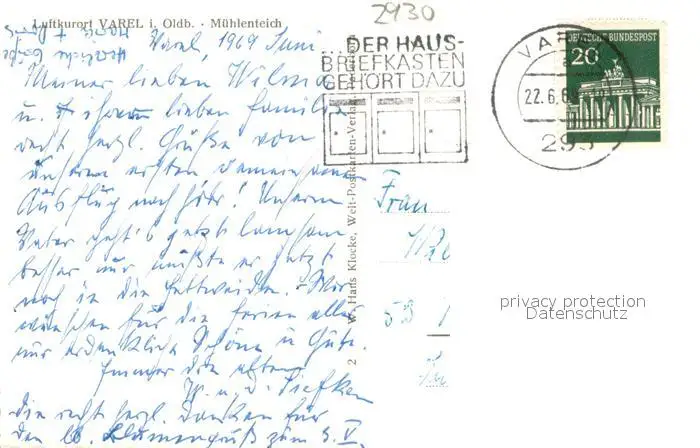 2930
Luftkurort VAREL i. Oldb. - Mühlenteich
Varel, 1969 Juni
Meiner lieben Wilma
u. ihrer lieben Familie
recht herzl. Grüße von
unserem ersten
Ausflug nach hier! Unserm
Vater geht's jetzt langsam
besser nur müßte er jetzt
noch in die Fettweiden. - Wir
wünschen für die Ferien alles
nur erdenklich Schöne u. Gute.
Immer die alten
W. u. d. Siefken
die recht herzl. Danken für
den lb. Blumengruß zum 5. V.
...DER HAUS-
BRIEFKASTEN
GEHÖRT DAZU
VAREL
22.6.69
293
DEUTSCHE BUNDESPOST
20
2 W. Hans Klocke, Welt-Postkarten-Verlag
Frau
53
privacy protection
Datenschutz